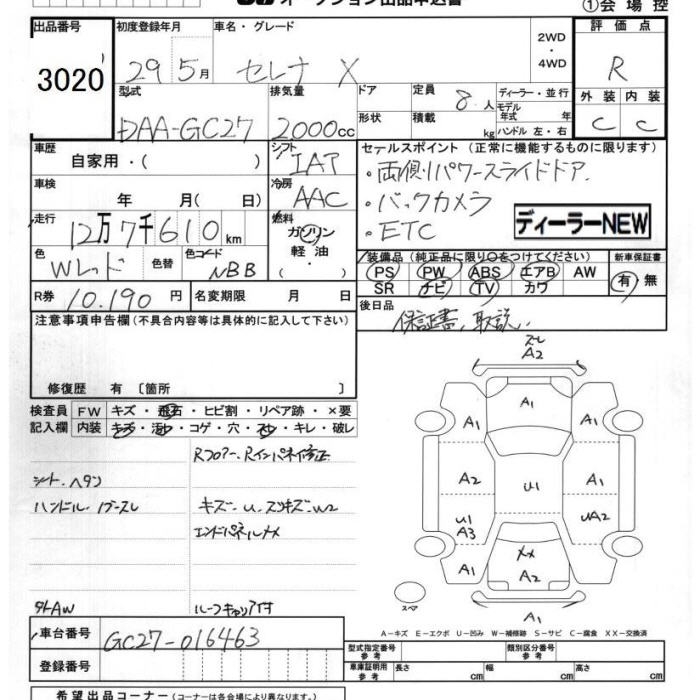 オークション出品申込書
①会場控
出品番号
3020
初度登録年月
29 5月
車名・グレード
セレナ X
2WD
・
4WD
評価点
R
型式
DAA-GC27
排気量
2000cc
ドア
形状
定員
8人
積載
kg
ディーラー・並行
モデル年式 年
ハンドル 左・右
外装 内装
C C
車歴
自家用・( )
シフト
IAT
セールスポイント (正常に機能するものに限ります)
・両側パワースライドドア
・バックカメラ
・ETC
ディーラーNEW
車検
年 月( 日)
冷房
AAC
走行
12万7千610km
燃料
ガソリン
軽油
・
色
Wレッド
色替
色コード
NBB
R券 10.190円
名変期限 月 日
装備品(純正品に限り○をつけてください)
PS PW ABS エアB AW
SR ナビ TV カワ
新車保証書
有・無
後日品
保証書、取説、
注意事項申告欄(不具合内容等は具体的に記入して下さい)
修復歴 有 〔箇所 〕
検査員記入欄
FW キズ・飛石・ヒビ割・リペア跡・×要
内装 キズ・汚れ・コゲ・穴・スレ・キレ・破レ
Rフロアー、Rインパネ修正
シート ヘタリ
ハンドル
キズ・U、スリキズ・W2
エンドパネルXX
タトAW
ルーフキャリア付
スレ
A2
A1
A1
A1
A2
U1
A2
U1
A3
UA2
A1
XX
A2
A1
A1
スペア
A-キズ E-エクボ U-凹み W-補修跡 S-サビ C-腐食 XX-交換済
車台番号
GC27-016463
登録番号
型式指定番号
参考
類別区分番号
参考
車庫証明用
参考
長さ cm 幅 cm 高さ cm
希望出品コーナー(コーナーは各会場により異なります。)